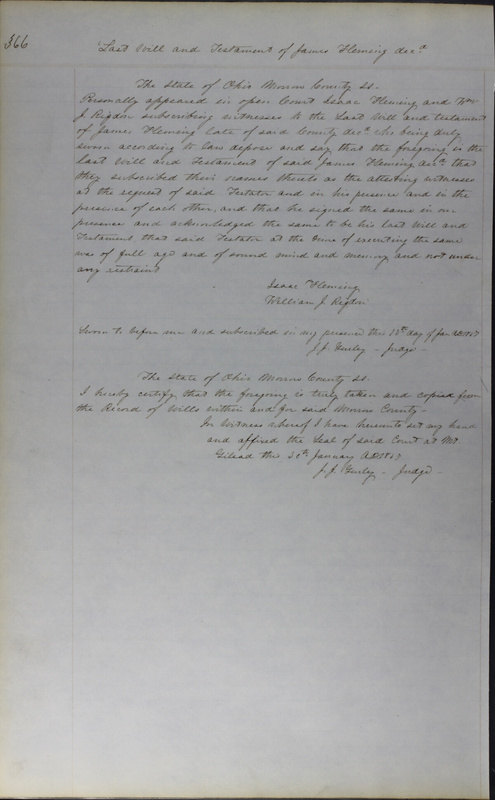 366
Last Will and Testament of James Fleming decd
The State of Ohio Morrow County SS.
Personally appeared in open Court Isaac Fleming and Wm
J. Rigdon subscribing witnesses to the Last Will and testament
of James Fleming late of said County decd who being duly
sworn according to law depose and say that the foregoing is the
last Will and Testament of said James Fleming decd that
they subscribed their names thereto as the attesting witnesses
at the request of said Testator and in his presence and in the
presence of each other, and that he signed the same in our
presence and acknowledged the same to be his last Will and
Testament that said Testator at the time of executing the same
was of full age and of sound mind and memory and not under
any restraint
Isaac Fleming
William J. Rigdon
Sworn to before me and subscribed in my presence this day of Jan
J. J. Gurley - Judge -
The State of Ohio Morrow County SS.
I hereby certify that the foregoing is truly taken and copied from
the Record of Wills within and for said Morrow County -
In Witness whereof I have hereunto set my hand
and affixed the Seal of said Court at Mt.
Gilead this January
J. J. Gurley - Judge -